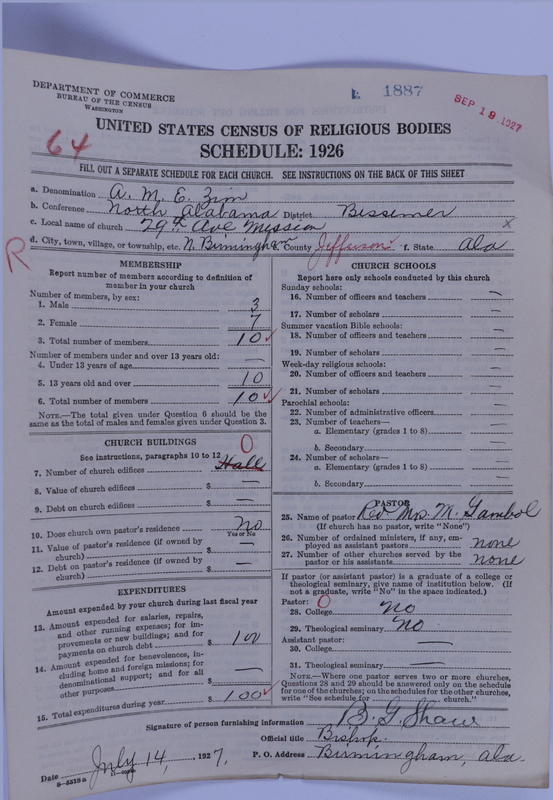 DEPARTMENT OF COMMERCE
BUREAU OF THE CENSUS
WASHINGTON
1887
SEP 19 1927
64
UNITED STATES CENSUS OF RELIGIOUS BODIES
SCHEDULE: 1926
FILL OUT A SEPARATE SCHEDULE FOR EACH CHURCH. SEE INSTRUCTIONS ON THE BACK OF THIS SHEET
a. Denomination A. M. E. Zion
b. Conference North Alabama District Bessemer
c. Local name of church 29th Ave Mission x
d. City, town, village, or township, etc. N. Birmingham County Jefferson f. State Ala
R
MEMBERSHIP
Report number of members according to definition of
member in your church
Number of members, by sex:
1. Male 3
2. Female 7
3. Total number of members 10 ✓
Number of members under and over 13 years old:
4. Under 13 years of age —
5. 13 years old and over 10
6. Total number of members 10 ✓
NOTE.—The total given under Question 6 should be the
same as the total of males and females given under Question 3.
CHURCH BUILDINGS
See instructions, paragraphs 10 to 12 0
7. Number of church edifices Hall
8. Value of church edifices $ —
9. Debt on church edifices $ —
10. Does church own pastor's residence No
Yes or No
11. Value of pastor's residence (if owned by
church) $ —
12. Debt on pastor's residence (if owned by
church) $ —
EXPENDITURES
Amount expended by your church during last fiscal year
13. Amount expended for salaries, repairs,
and other running expenses; for im-
provements or new buildings; and for
payments on church debt $ 100
14. Amount expended for benevolences, in-
cluding home and foreign missions; for
denominational support; and for all
other purposes $ —
15. Total expenditures during year $ 100 ✓
CHURCH SCHOOLS
Report here only schools conducted by this church
Sunday schools:
16. Number of officers and teachers —
17. Number of scholars —
Summer vacation Bible schools:
18. Number of officers and teachers —
19. Number of scholars —
Week-day religious schools:
20. Number of officers and teachers —
21. Number of scholars —
Parochial schools:
22. Number of administrative officers —
23. Number of teachers—
a. Elementary (grades 1 to 8) —
b. Secondary —
24. Number of scholars—
a. Elementary (grades 1 to 8) —
b. Secondary —
PASTOR
25. Name of pastor Rev Mrs. M. Gambol
(If church has no pastor, write "None")
26. Number of ordained ministers, if any, em-
ployed as assistant pastors none
27. Number of other churches served by the
pastor or his assistants none
If pastor (or assistant pastor) is a graduate of a college or
theological seminary, give name of institution below. (If
not a graduate, write "No" in the space indicated.)
Pastor: 0
28. College No
29. Theological seminary No
Assistant pastor: —
30. College
31. Theological seminary —
NOTE.—Where one pastor serves two or more churches,
Questions 28 and 29 should be answered only on the schedule
for one of the churches; on the schedules for the other churches,
write "See schedule for church."
Signature of person furnishing information B. G. Shaw
Official title Bishop.
Date July 14, 1927. P. O. Address Birmingham, Ala.
8-5518a